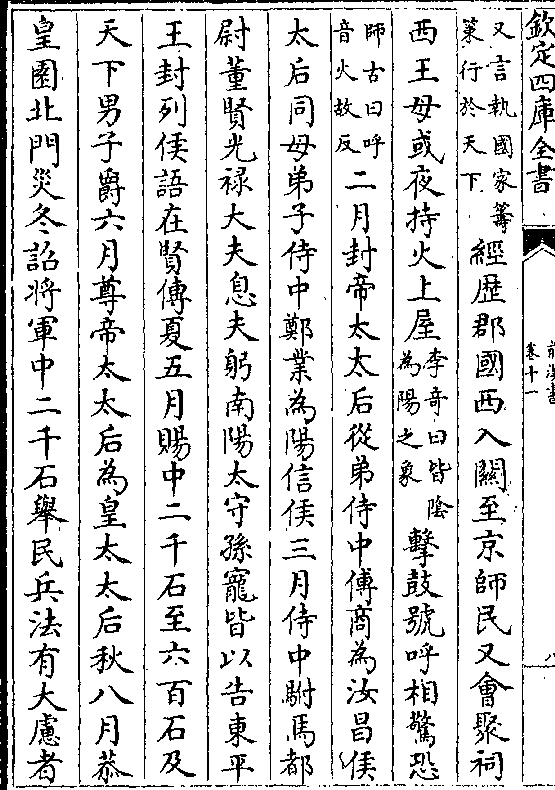 欽定四庫全書
卷十一
又言執國家籌
策行於天下
經歴郡國西入關至京師民又會聚祠
西王母或夜持火上屋
李奇曰皆隂
為陽之象
擊鼓號呼相驚恐
師古曰呼
音火故反
二月封帝太太后從弟侍中傅商為汝昌侯
太后同母弟子侍中鄭業為陽信侯三月侍中駙馬都
尉董賢光禄大夫息夫躬南陽太守孫寵皆以告東平
王封列侯語在賢傳夏五月賜中二千石至六百石及
天下男子爵六月尊帝太太后為皇太太后秋八月恭
皇園北門災冬詔將軍中二千石舉民兵法有大慮者